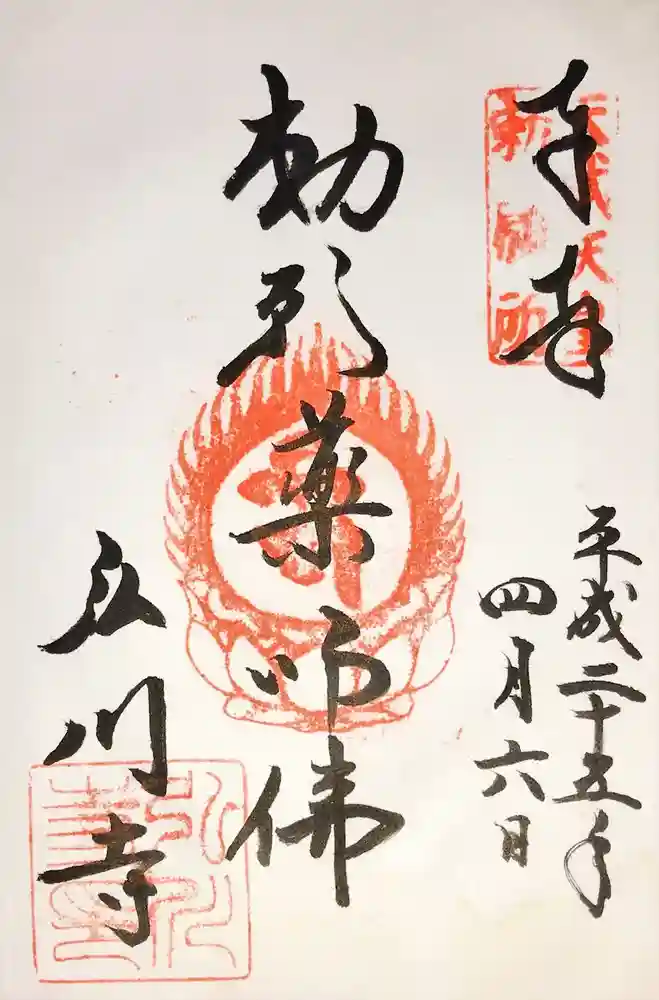 奉拝
天武天皇
勅願所
平成二十五年
四月六日
勅願薬師佛
弘川寺